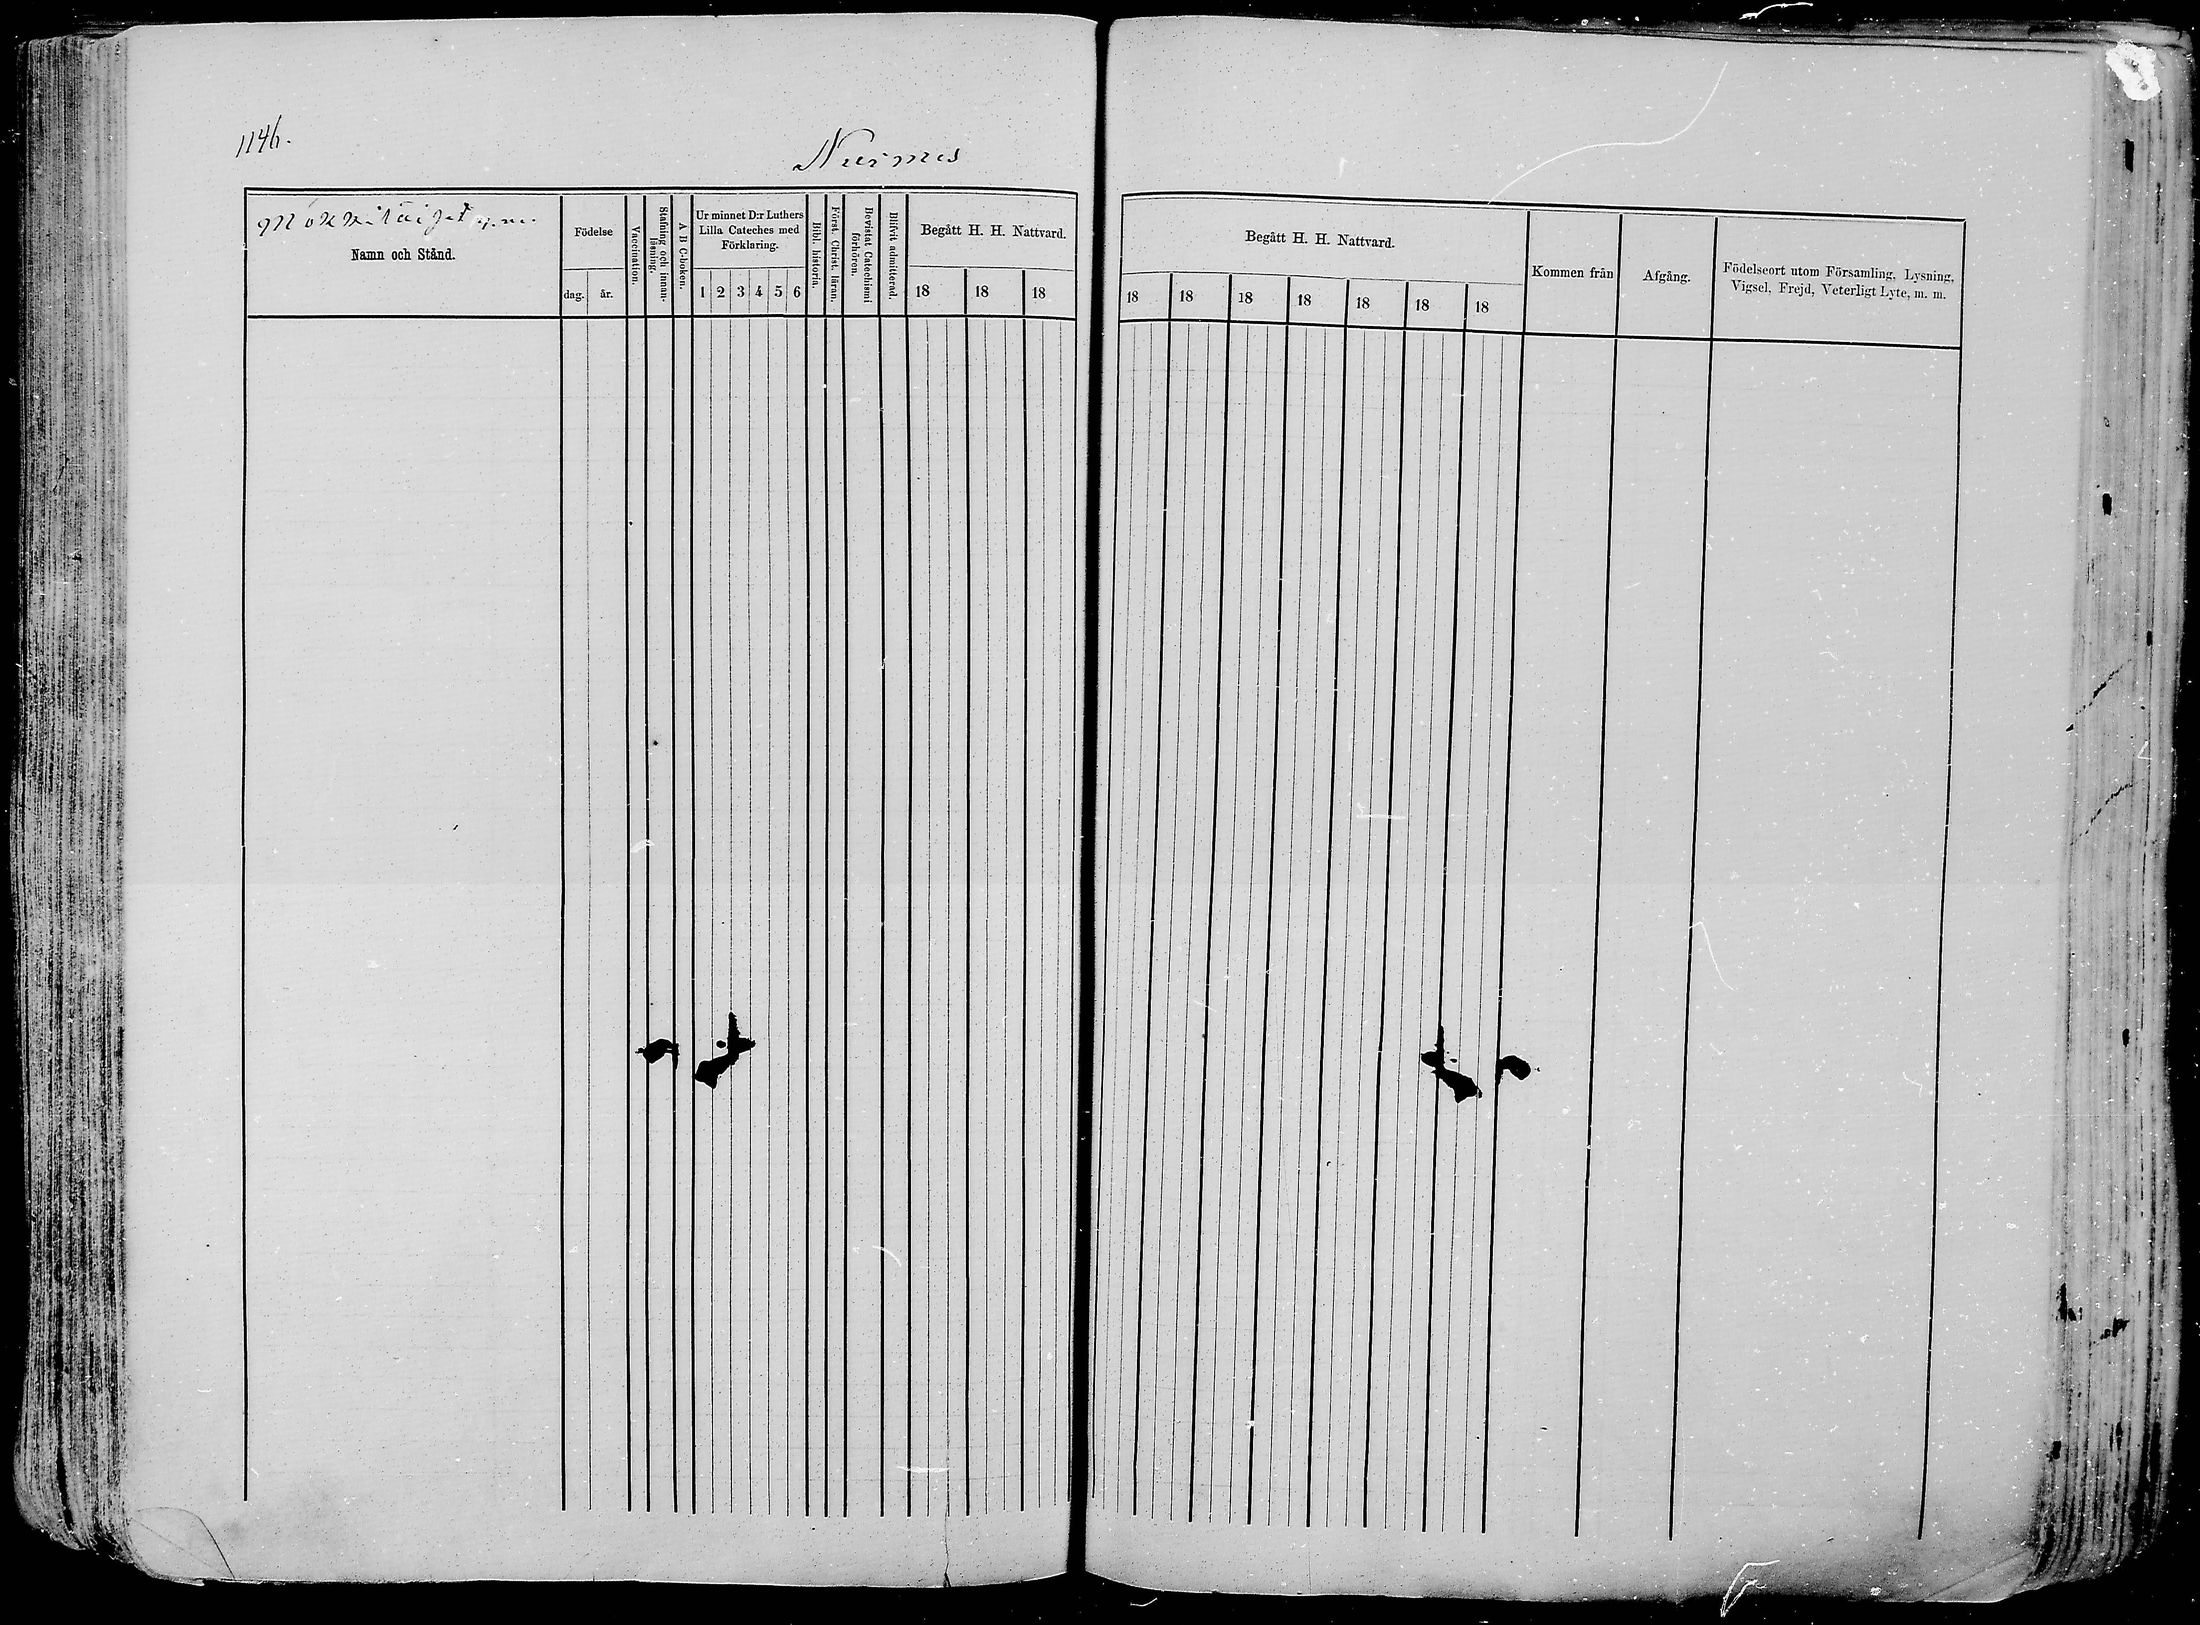 1146.
Nurmes
Namn och Stånd.
Födelse
dag. år.
Vaccination.
Stafning och innan-
läsning.
A B C-boken.
Ur minnet D:r Luthers
Lilla Cateches med
Förklaring.
1 2 3 4 5 6
Bibl. historia.
Först. Christ. läran.
Bevistat Catechismi
förhören.
Blifvit admitterad.
Begått H. H. Nattvard.
18 18 18
Begått H. H. Nattvard.
18 18 18 18 18 18 18
Kommen från
Afgång.
Födelseort utom Församling, Lysning,
Vigsel, Frejd, Veterligt Lyte, m. m.